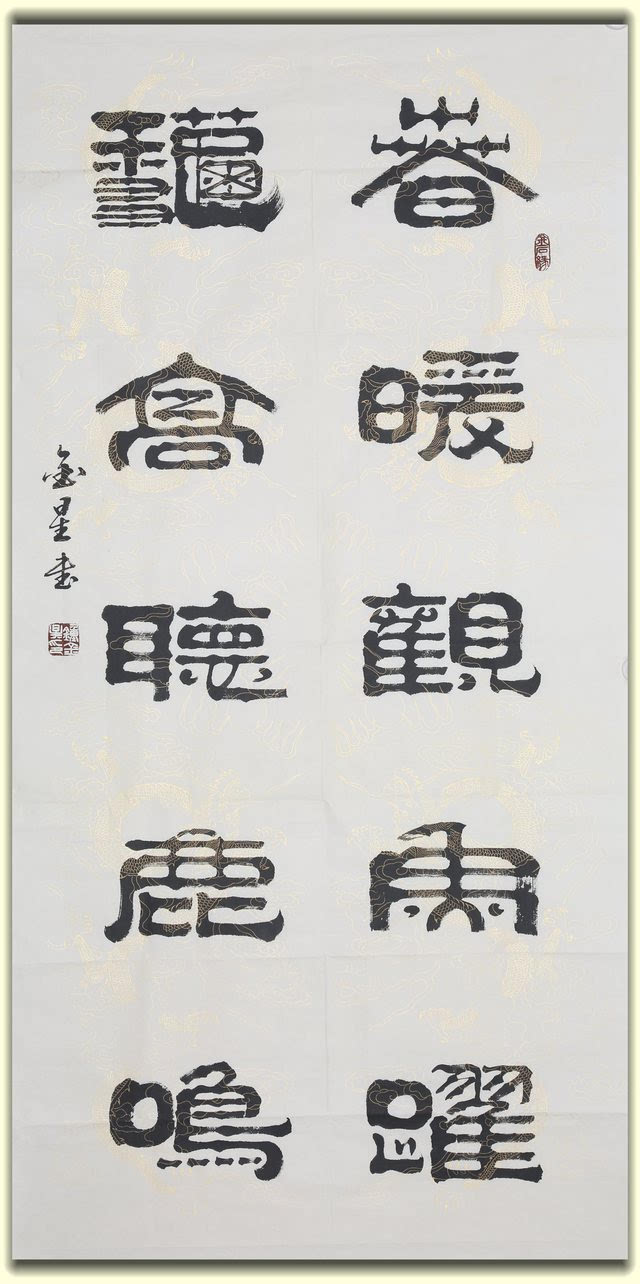 春暖觀魚躍
龝高聽鹿鳴
金星书